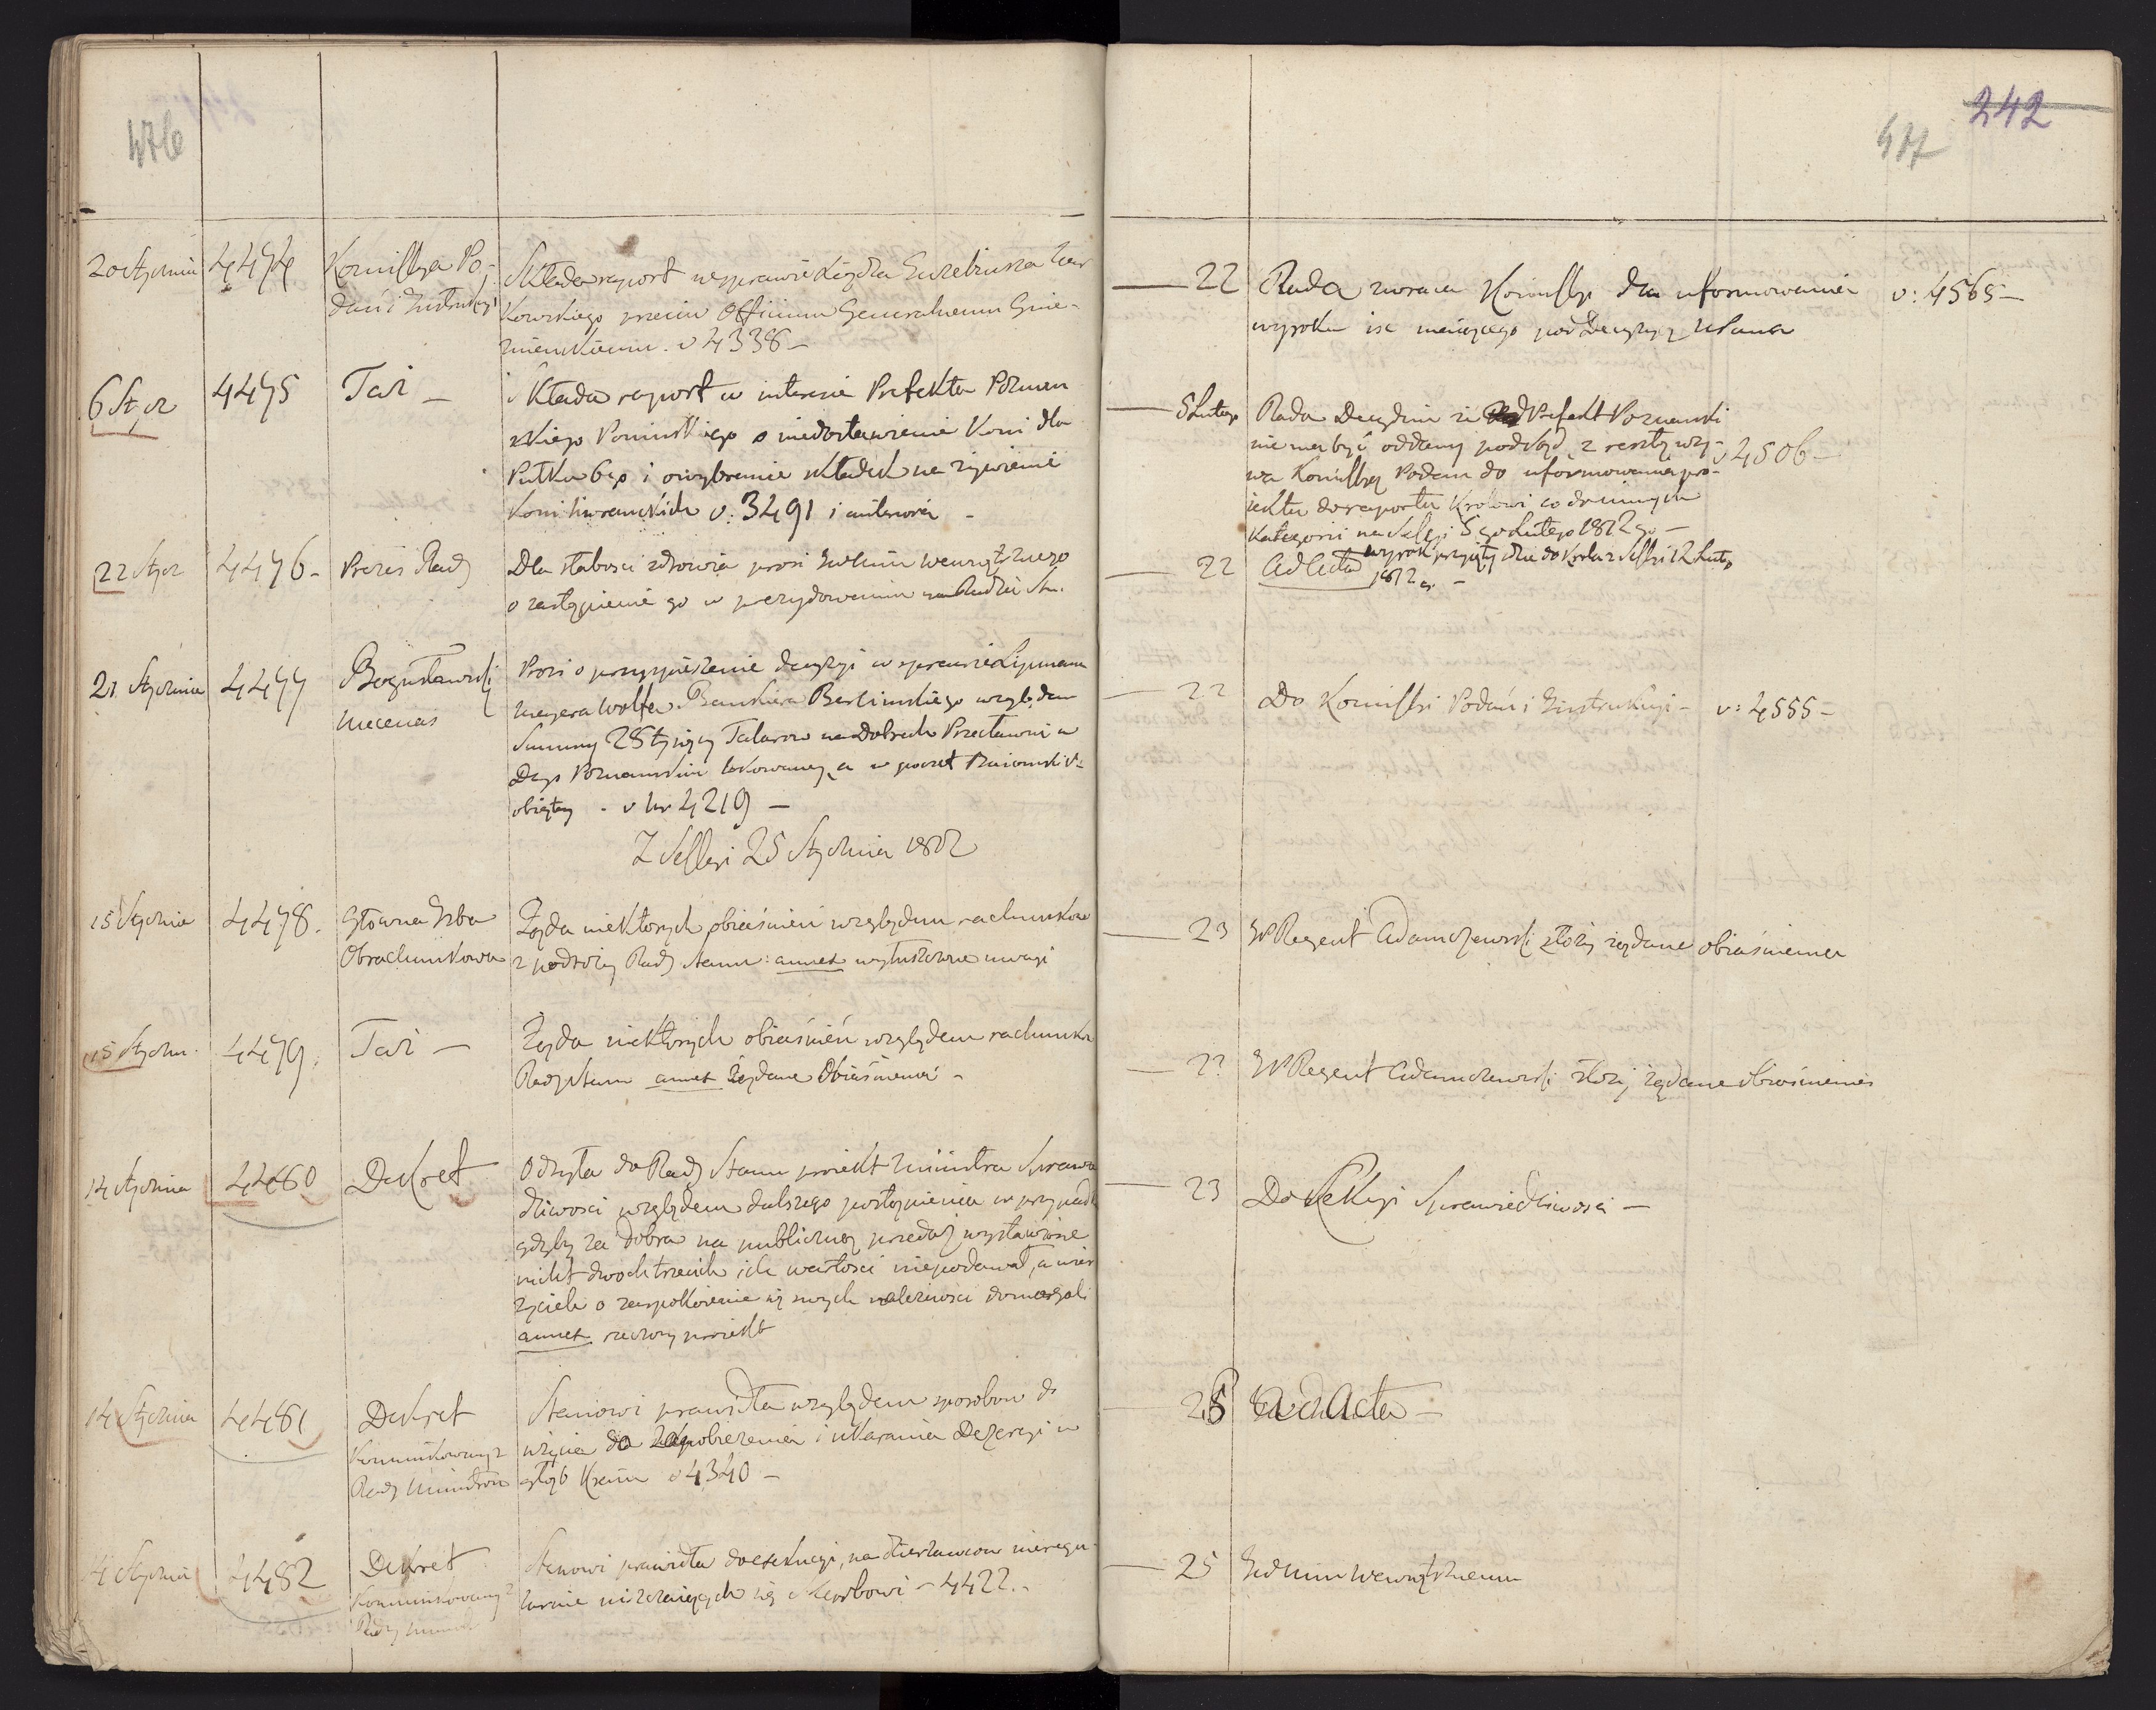 476
20 Stycznia 4474 Kommissya Po-
dań i Instrukcyi
Składa raport w sprawie Xiędza Euzebiusza
kowskiego przeciw Officium Generalnemu Gnie-
znienskiemu. v 4338 –
6 Stycz 4475 Taż –
Składa raport w interesie Prefekta Poznan
skiego Poninskiego o niedostawienie Koni dla
Pułku 6go i o wybranie składek na żywienie
Koni v: 3491 i
22 Stycz 4476 – Prezes Rady
Dla słabosci zdrowia prosi Wewnętrznego
o zastąpienie go w prezydowaniu na Radzie Stu.
21 Stycznia 4477 Bogusławski
Mecenas
Prosi o przyspieszenie decyzyi w sprawie Lipmana
Meyera Wolffa Bankiera Berlinskiego względem
Summy 28 tysięcy Talarow na Dobrach w
Depo Poznanskim lokowaney, a w poczet
obiętey – v Nr 4219 –
Z Sessyi 25 Stycznia 1812
15 Stycznia 4478. Główna Izba
Obrachunkowa
Żąda niektorych obiaśnień względem rachunkow
z podroży Rady Stanu: annex wytuszczone uwagi
15 Styczn. 4479. Taż –
Żąda niektorych obiaśnień względem rachunku
Rady Stanu annex żądane Obiaśnienia –
14 Stycznia 4480 Dekret
Odsyła do Rady Stanu proiekt Ministra Sprawie
dliwosci względem dalszego postąpienia w przypadku
gdyby za dobra na publiczney przedaż wystawione
nikt dwoch trzecich ich wartosci niepodawał, a wierz
zyciele o zaspokoienie się swych należnosci domagali
annex rzeczony proiekt
14 Stycznia 4481 Dekret
Kommunikowany z
Rady Ministrow
Stanowi prawidła względem sposobow do
użycia do zapobieżenia i ukarania Dezercyi w
głąb Kraiu v 4340 –
14 Stycznia 4482 Dekret
Kommunikowany z
Rady
Stanowi prawidła do exekucyi, na dzierżawcow nieregu-
larnie uiszczaiących się Skarbowi – 4422. –
242
477
22 Rada zwraca Kommissyi dla uformowania v: 4565 –
wyroku iść maiącego pod Decyzyą
5 Lutego Rada Decyduie iż Prefekt Poznanski
nie ma być oddany pod Sąd, z resztą wzy- v 4506 –
wa Kommissyą Podan do uformowania pro-
iektu do raportu Krolowi
Kategorii na Sessyi 5go Lutego 1812 go –
wyrok przyięty idzie do Krola z Sessyi 12 Lutego
1812 r. –
22 Ad Acta
22 Do Kommissyi Podań i Instrukcyi – v: 4555 –
23 JP Regent Adamczewski złoży żądane obiaśnienia
2? JP Regent Adamczewski złoży żądane obiaśnienia
23 Do Sekcyi Sprawiedliwosci –
25 ad Acta –
25 Wewnętrznemu